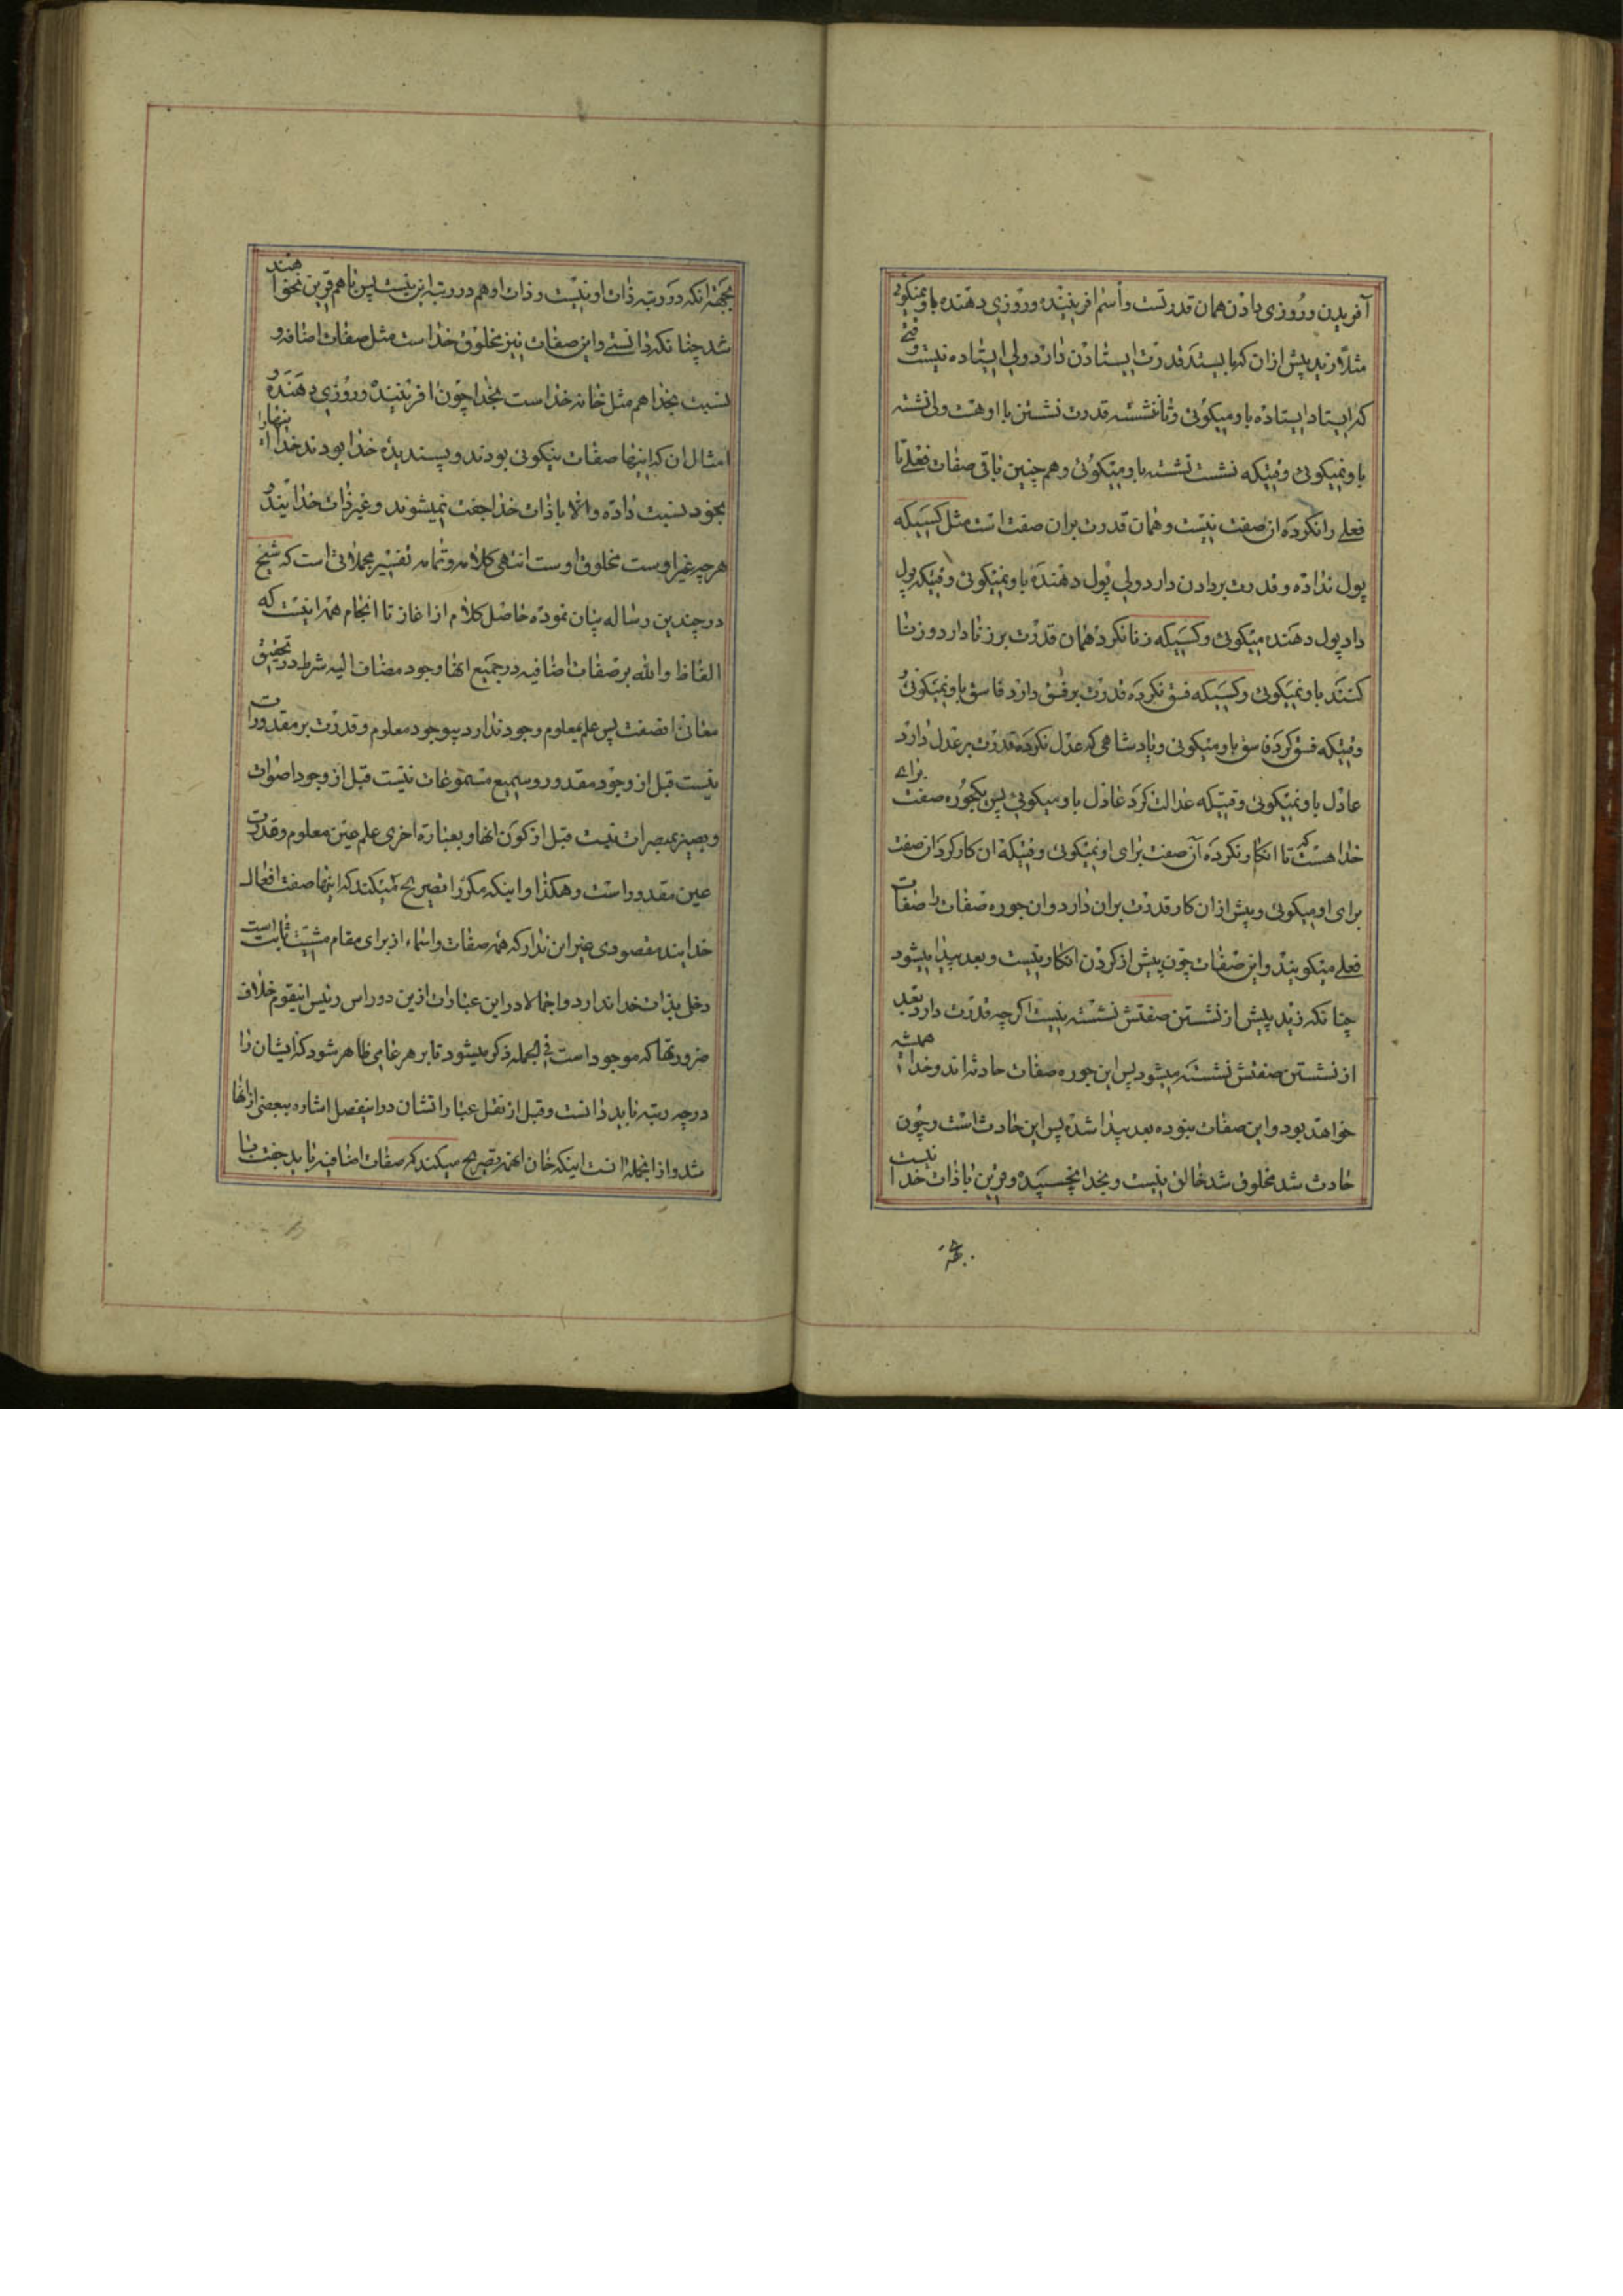 آفریدن و روزی دادن همان قدرتست و اسم افریننده و روزی دهنده باو نمیگوئی
مثلا زید پیش از ان که بایستد قدرت ایستادن دارد ولی ایستاده نیست وقتی
که ایستاد ایستاده باو میگوئی و تا ننشسته قدرت نشستن با او هست ولی نشسته
باو نمیگوئی وقتیکه نشست نشسته باو میگوئی و هم چنین باقی صفات فعلی تا
فعلی را نکرده ان صفت نیست و همان قدرت بران صفت است مثل کسیکه
پول نداده و قدرت بر دادن دارد ولی پول دهنده باو نمیگوئی وقتیکه پول
داد پول دهنده میگوئی و کسیکه زنا نکرده همان قدرت بر زنا دارد و زنا
کننده باو نمیگوئی و کسیکه فسق نکرده قدرت بر فسق دارد فاسق باو نمیگوئی
وقتیکه فسق کرد فاسق باو میگوئی و پادشاهی که عدل نکرده قدرت بر عدل دارد
عادل باو نمیگوئی وقتیکه عدالت کرد عادل باو میگوئی پس یکجوره صفت برای
خدا هست که تا انکار نکرده آن صفت برای او نمیگوئی وقتیکه ان کار کرد ان صفت
برای او میگوئی و پیش از ان کار قدرت بران دارد و ان جوره صفات را صفات
فعلی میگویند و این صفات چون پیش از کردن انکار نیست و بعد پیدا میشود
چنانکه زید پیش از نشستن صفتش نشسته نیست اگرچه قدرت دارد بعد
از نشستن صفتش نشسته میشود پس این جوره صفات حادث اند و خدا همیشه
خواهد بود و این صفات نبوده بعد پیدا شده پس این حادث است و چون
حادث شد مخلوق شد خالق نیست و بخدا نچسبیده و قرین با ذات خدا نیست
بجهة
بجهة انکه در رتبه ذات او نیست و ذات او هم در رتبه این نیست پس با هم قرین نخواهند
شد چنانکه دانستی و این صفات نیز مخلوق خداست مثل صفات اضافه و
نسبت بخدا هم مثل خانه خداست بخدا چون افریننده و روزی دهنده و
امثال ان که اینها صفات نیکوئی بودند و پسندیده خدا بودند خدا اینها را
بخود نسبت داده و الا با ذات خدا جفت نمیشوند و غیر ذات خدایند و
هر چه غیر اوست مخلوق اوست انتهی کلامه و تمامه تفسیر مجملاتی است که شیخ
در چندین رساله بیان نموده حاصل کلام از اغاز تا انجام همه اینست که
الفاظ داله بر صفات اضافیه در جمیع انها وجود مضاف الیه شرط در تحقیق
معانی انصفت پس علم بمعلوم وجود ندارد بی وجود معلوم و قدرت بر مقدورات
نیست قبل از وجود مقدور و سمیع مسموعات نیست قبل از وجود اصوات
و بصیر بمبصرات نیست قبل از کون انها و بعبارة اخری علم عین معلوم و قدرت
عین مقدور است و هکذا و اینکه مکررا تصریح میکند که اینها صفت افعال
خدایند مقصودی غیر این ندارد که همه صفات و اسماء از برای مقام مشیت ثابت است
دخل بذات خدا ندارد و اجمالا در این عبارات ازین دو راس و رئیس اینقوم خلاف
ضرورتها که موجود است فی الجمله ذکر میشود تا بر هر عامی ظاهر شود که ایشان را
در چه رتبه باید دانست و قبل از نقل عباراتشان در اینفصل اشاره ببعضی ازانها
شد و از انجمله است اینکه خان انهم تصریح میکند که صفات اضافیه باید جفت با